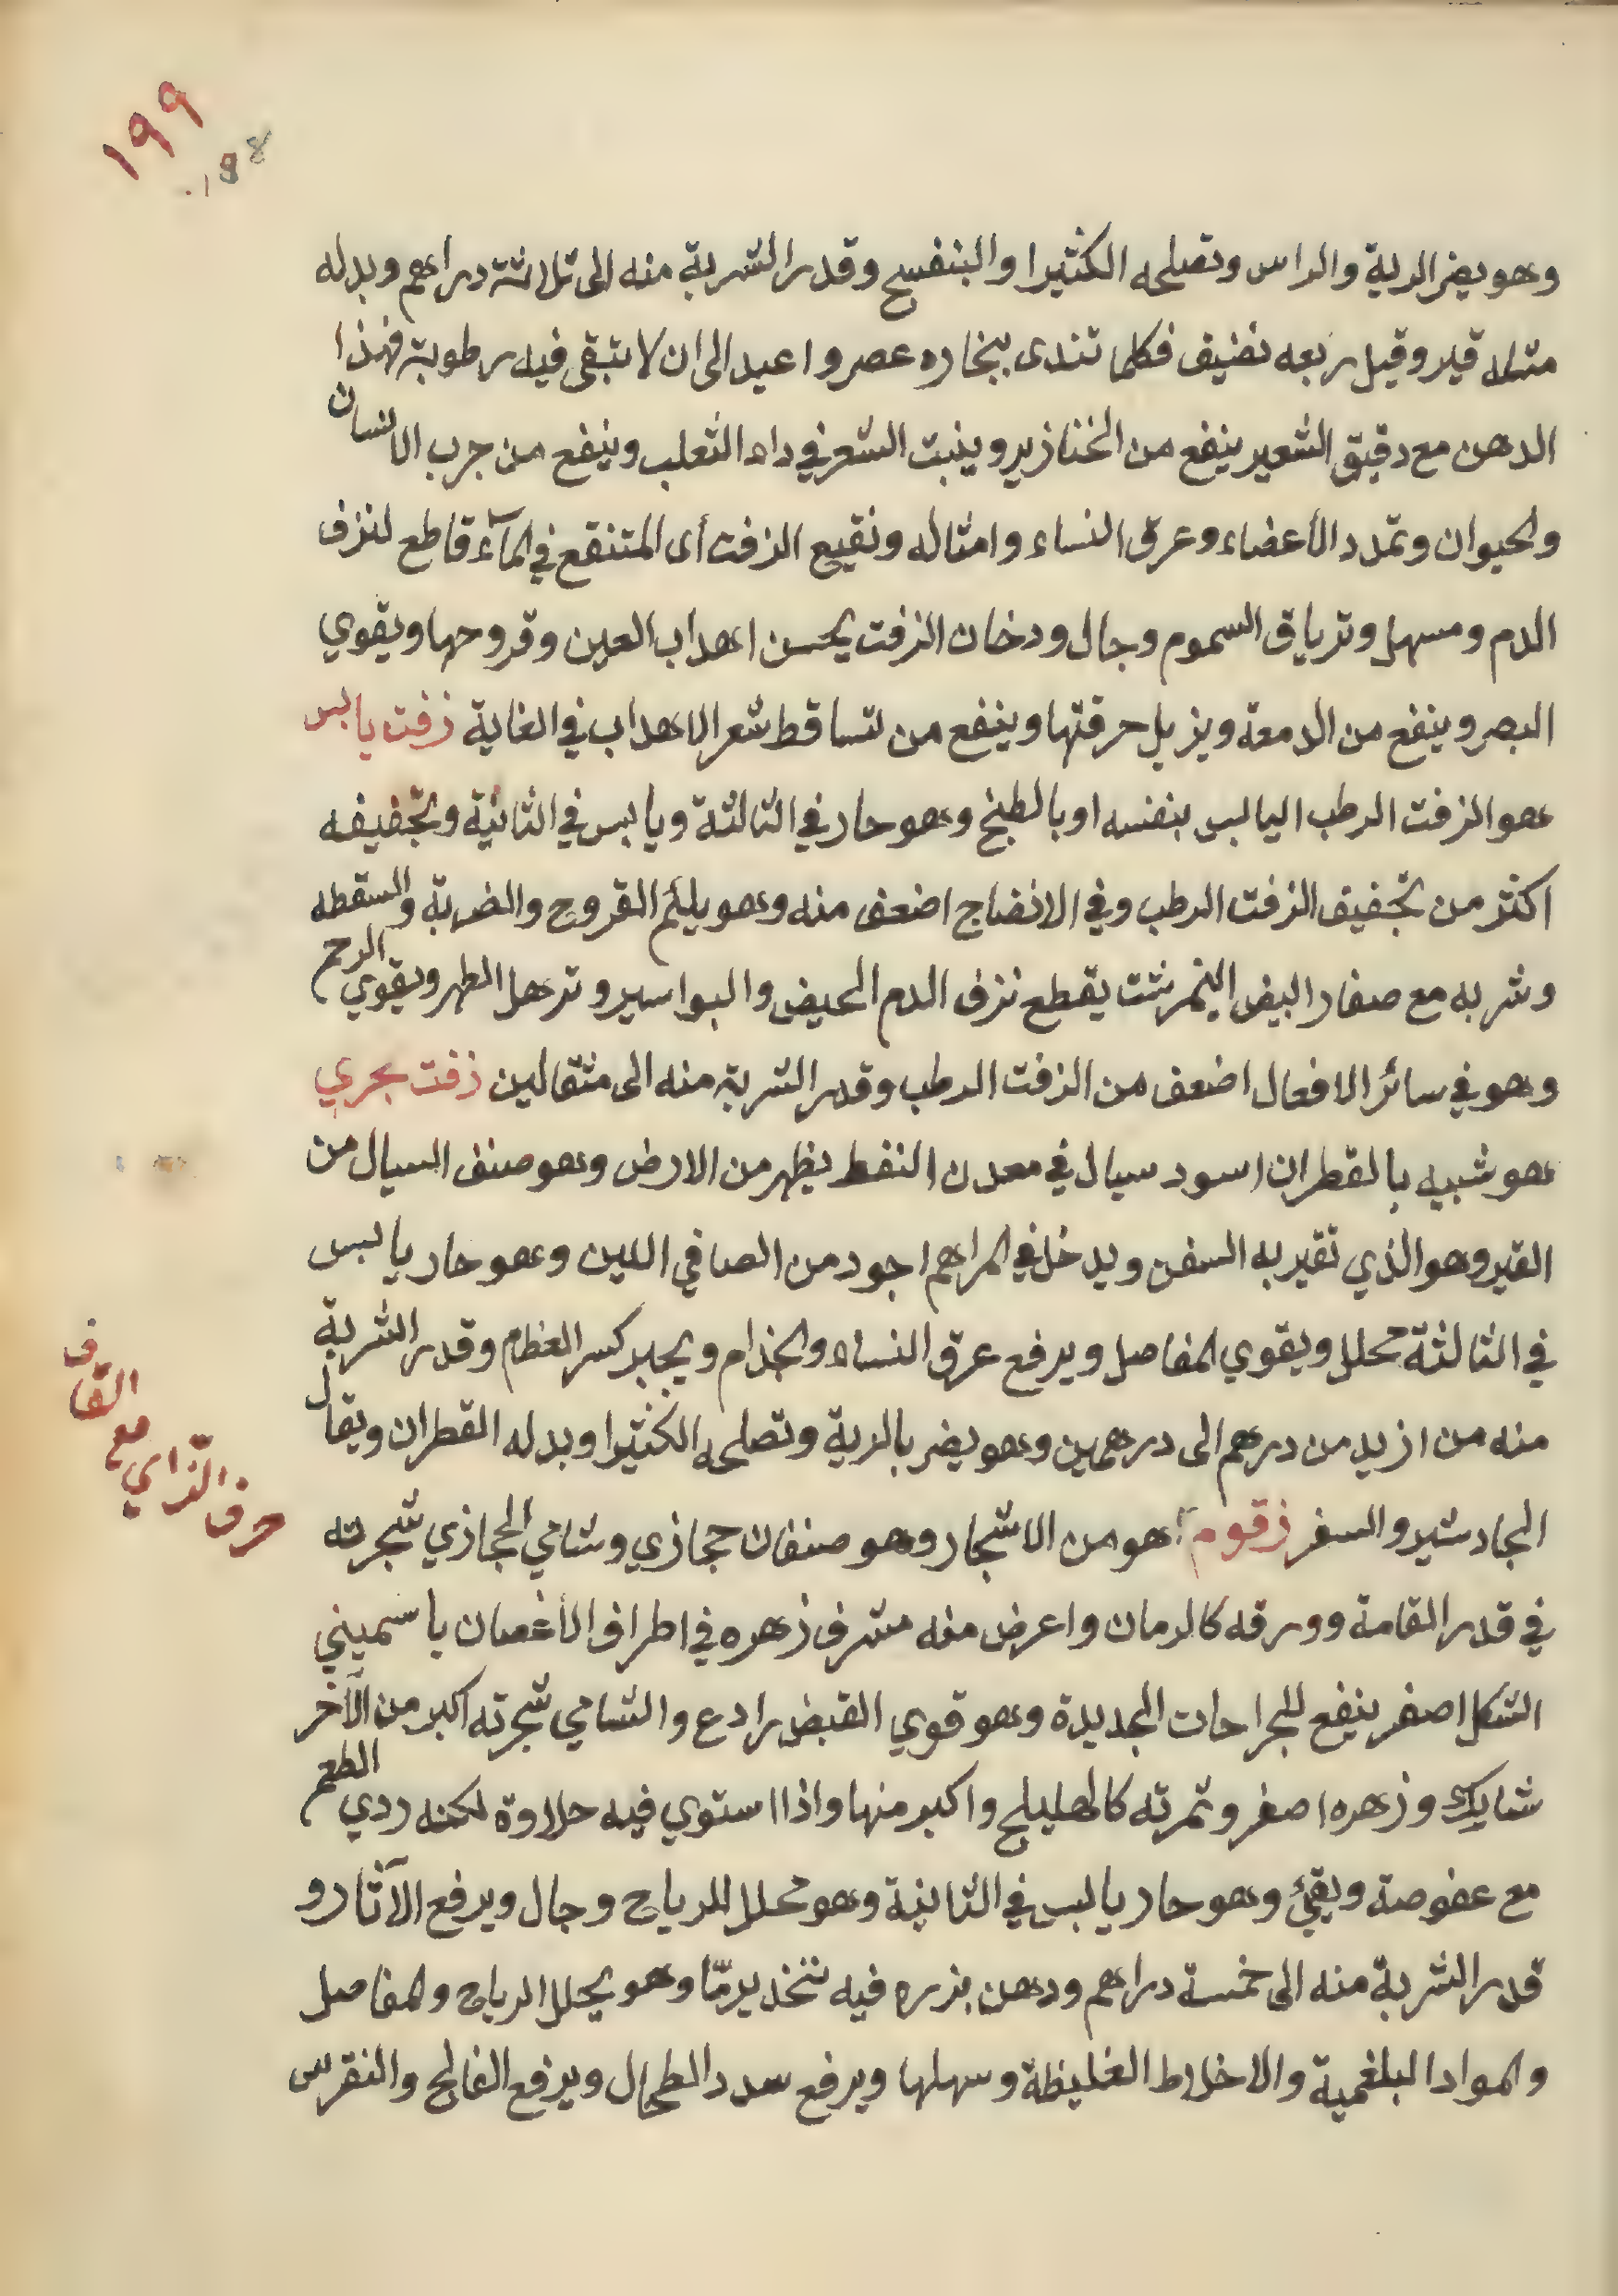 ١٩٩
198
وهو يضر الرية والراس وتصلحه الكثيرا والبنفسج وقدر الشربة منه الى ثلاثة دراهم وبدله
مثله قير وقيل ربعه نضيف فكلما تندى ببخاره عصر واعيد الى ان لا يبقى فيه رطوبة فهذا
الدهن مع دقيق الشعير ينفع من الخنازير وينبت الشعر في داء الثعلب وينفع من جرب الانسان
والحيوان وتمدد الأعضاء وعرق النساء وامثاله ونقيع الزفت أى المتنقع في المآء قاطع لنزف
الدم ومسهل وترياق السموم وجالى ودخان الزفت يحسن اهداب العين وقروحها ويقوي
البصر وينفع من الدمعة ويزيل حرقتها وينفع من تساقط شعر الاهداب في الغاية زفت يابس
هو الزفت الرطب اليابس بنفسه او بالطبخ وهو حار في الثالثة ويابس في الثانية وتجفيفه
اكثر من تجفيف الزفت الرطب وفي الانضاج اضعف منه وهو يلئم القروح والضربة والسقطه
وشربه مع صفار البيض النيمرشت يقطع نزف الدم الحيض والبواسير وترهل الطهر ويقوي الرحم
وهو في سائر الافعال اضعف من الزفت الرطب وقدر الشربة منه الى مثقالين زفت بحري
هو شبيه بالقطران اسود سيال في معدن النفط يظهر من الارض وهو صنف السيال من
القير وهو الذي تقير به السفن ويدخل في المراهم اجود من الصافي اللين وهو حار يابس
في الثالثة محلل ويقوي المفاصل ويرفع عرق النساء والجذام ويجبر كسر العظام وقدر الشربة
منه من ازيد من درهم الى درهمين وهو يضر بالرية وتصلحه الكثيرا وبدله القطران ويقال
الجادشير والسفر زقوم هو من الاشجار وهو صنفان حجازي وشامي الحجازي شجرته
في قدر القامة وورقه كالرمان واعرض منه مشرف زهره في اطراف الأغصان ياسميني
الشكل اصفر ينفع للجراحات الجديدة وهو قوي القبض رادع والشامي شجرته اكبر من الآخر
شايك وزهره اصفر وثمرته كالهليلج واكبر منها واذا استوي فيه حلاوة لكنه ردي الطعم
مع عفوصة ويقئ وهو حار يابس في الثانية وهو محلل للرياح وجال ويرفع الآثار و
قدر الشربة منه الى خمسة دراهم ودهن بزره فيه تخدير مّا وهو يحلل الرياح والمفاصل
والمواد البلغمية والاخلاط الغليظة وسهلها ويرفع سدد الطحال ويرفع الفالج والنقرس
حرف الزاي مع القاف